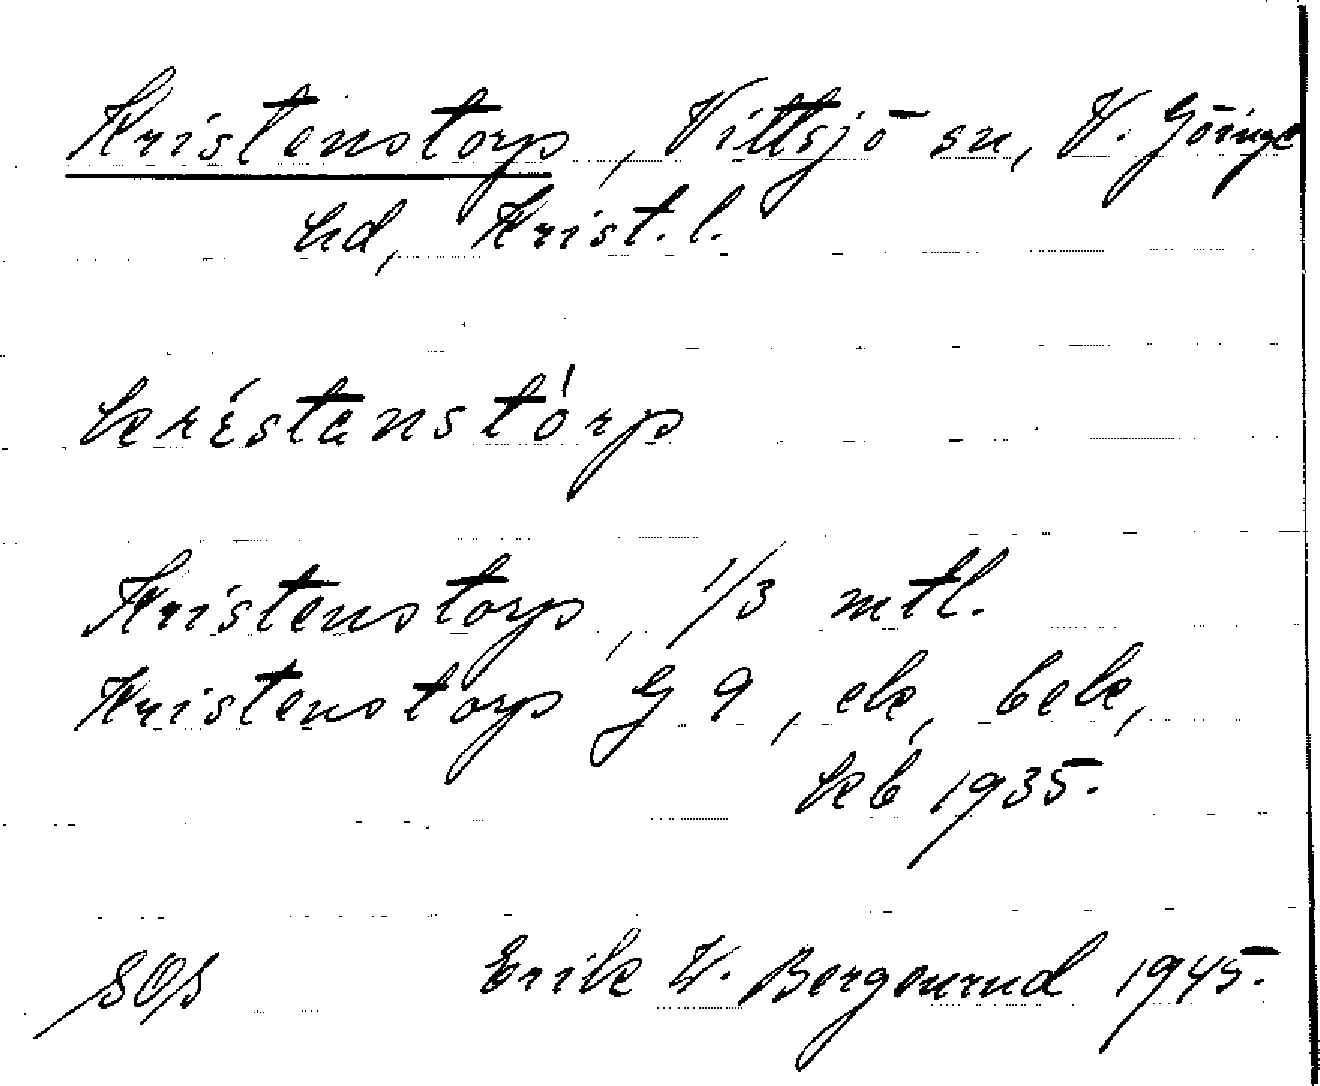 Kristenstorp, Vittsjö sn, V. Göinge
hd, Krist. l.
kréstanstó́rp
Kristenstorp, 1/3 mtl.
Kristenstorp G 9, ek, bek,
kb 1935.
SOS Erik W. Bergenrud 1945.